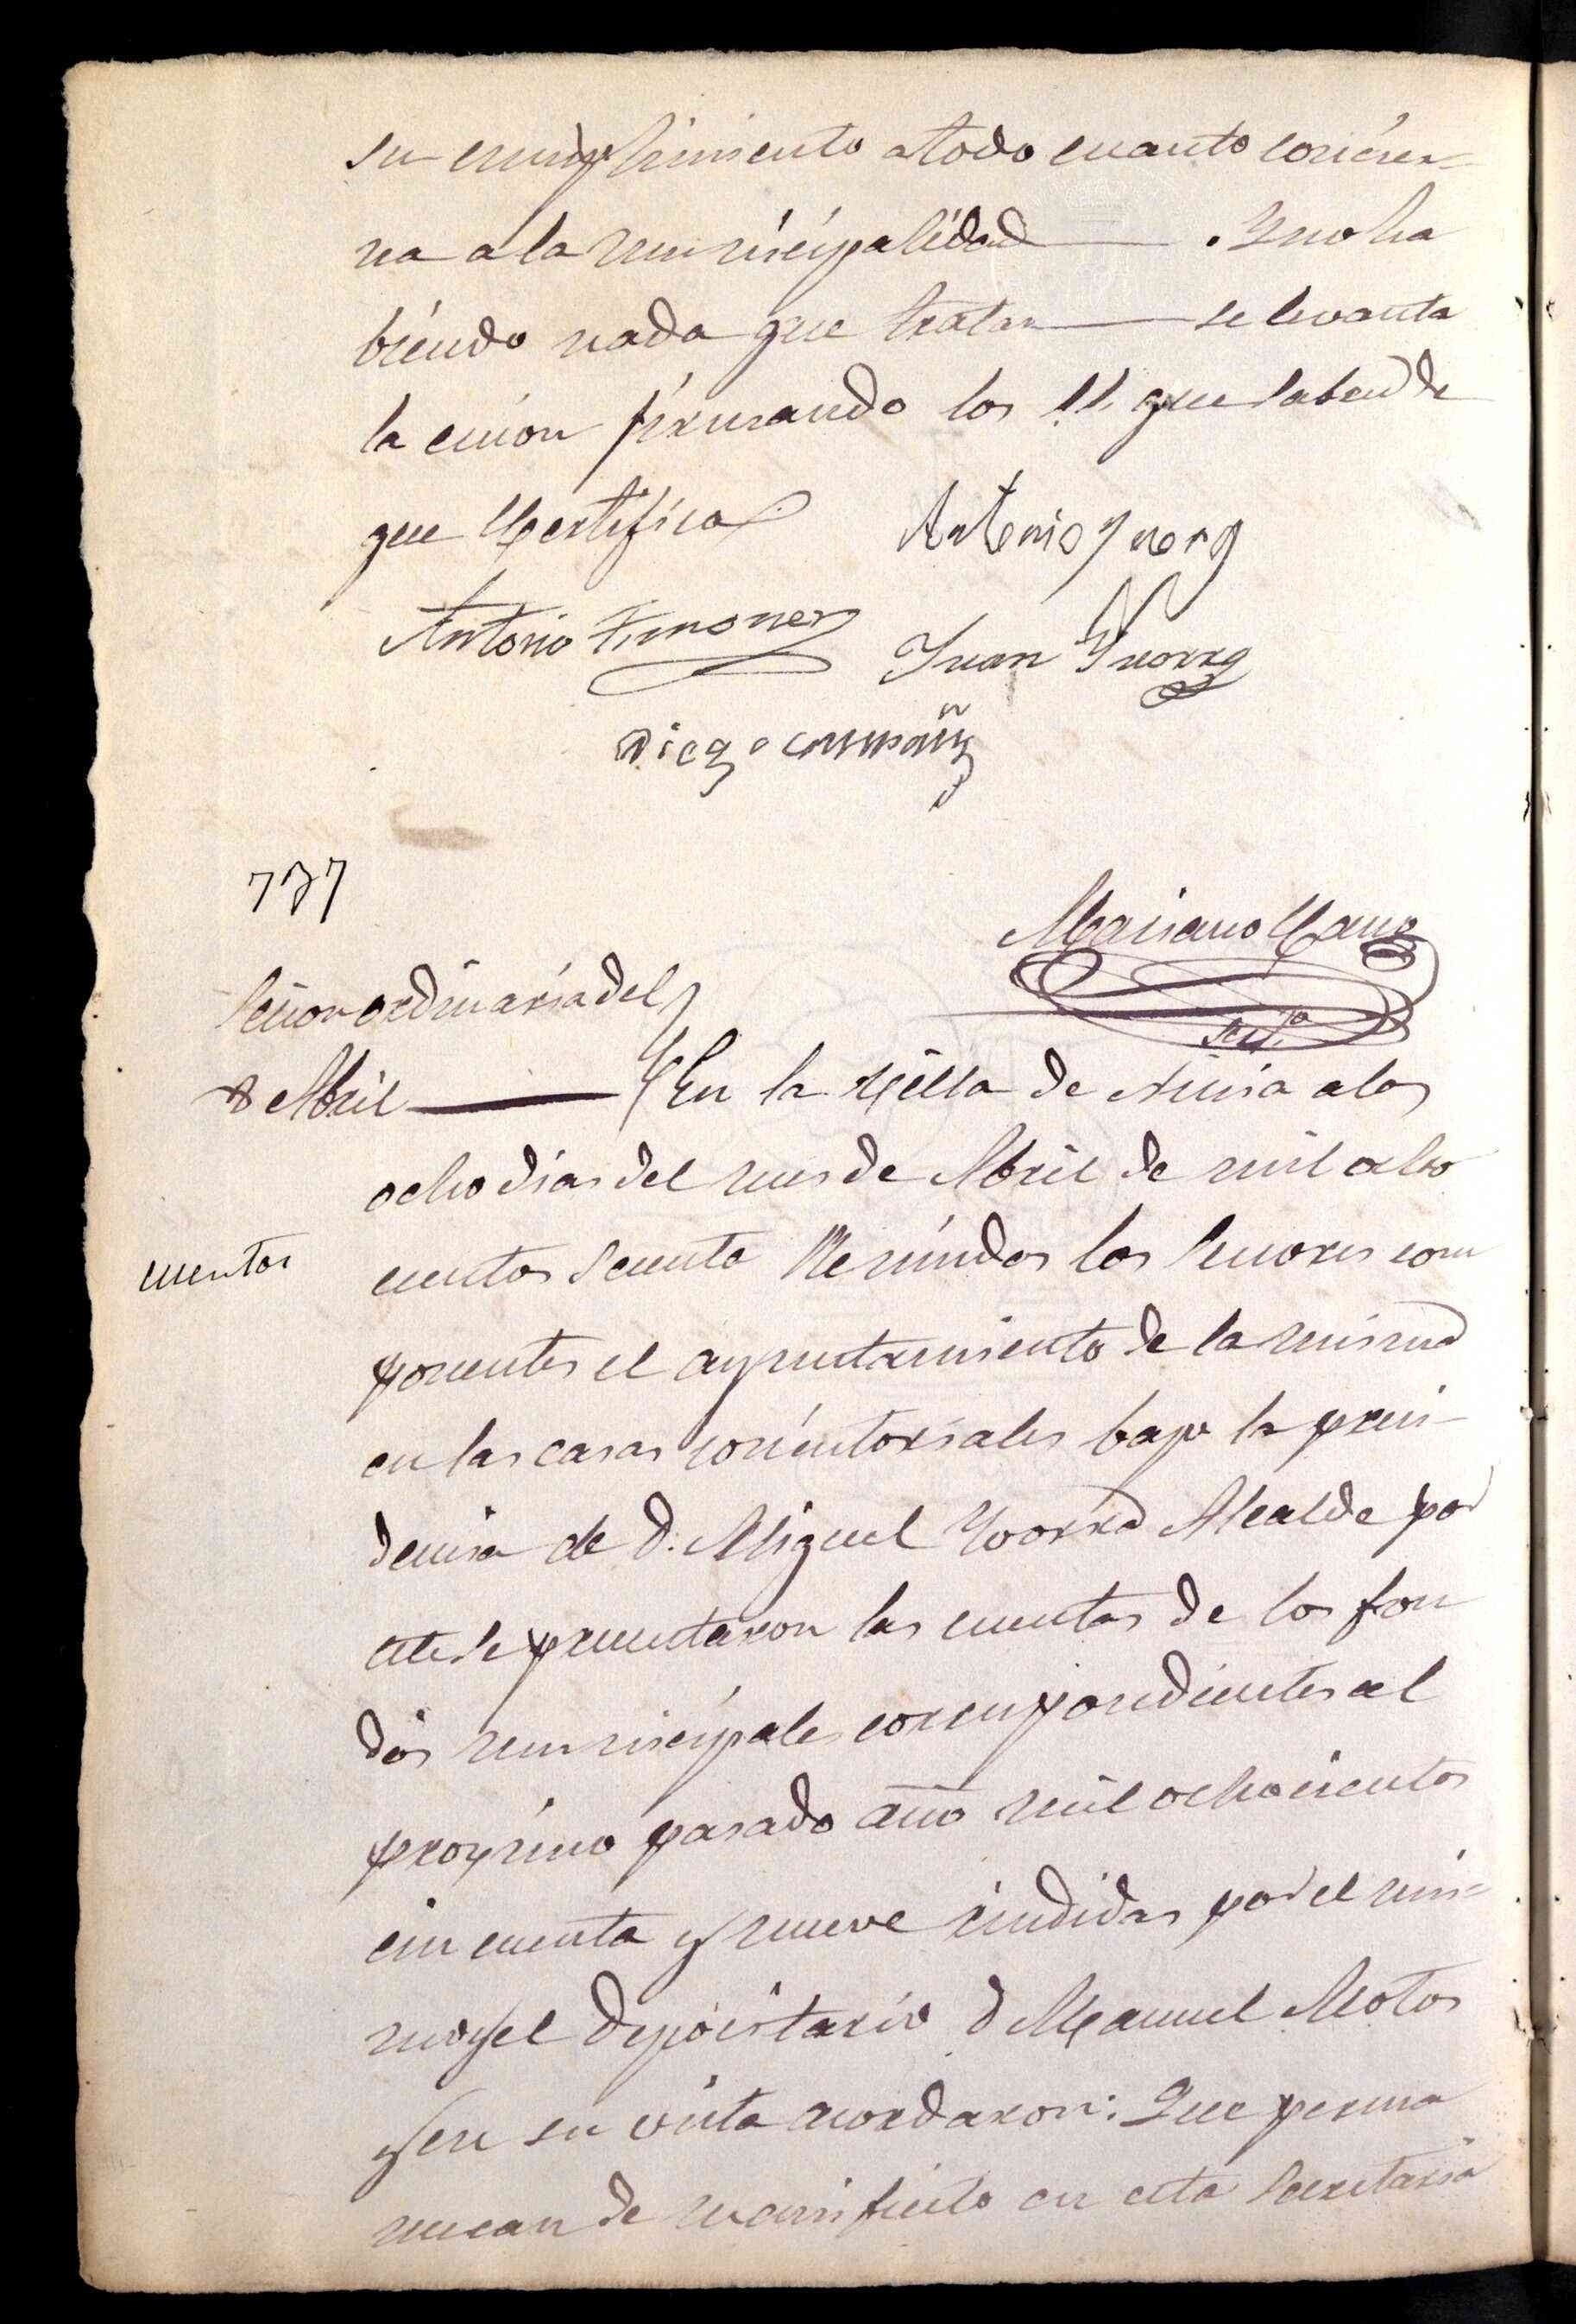 su cumplimiento atodo cuanto concier-
na a la municipalidad . Y no ha
biendo nada que tratar se levanta
la cecion firmando los SS. que saben de
que Certifico
Antonio Yvorra
Antonio Timoner
Juan Yvorra
Diego compañ
777
Mariano Cano
Srio
Secion ordinaria del
8 Abril En la Villa de Nucia a los
ocho dias del mes de Abril de mil ocho
cuentas
cientos secenta Reunidos los Senores com
ponentes el ayuntamiento de la misma
en las casas concistoriales bajo la preci-
dencia de D. Miguel Yvorra Alcalde por
este se precentaron las cuentas de los fon
dos municipales correspondientes al
procsimo pasado año mil ochocientos
cincuenta y nueve rindidas por el mis-
mo y el depocitario D Manuel Motos
y en su vista acordaron: Que perma
nescan de manifiesto en esta Secretaria